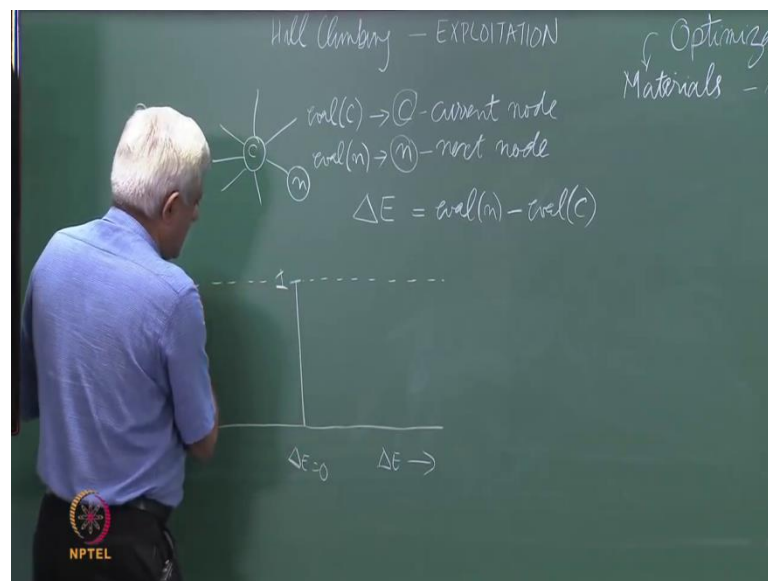 Hill Climbing – EXPLOITATION
Optimiz
Materials –
eval(C) → C - current node
eval(n) → n - next node
C
n
ΔE = eval(n) – eval(C)
1
ΔE=0 ΔE →
NPTEL